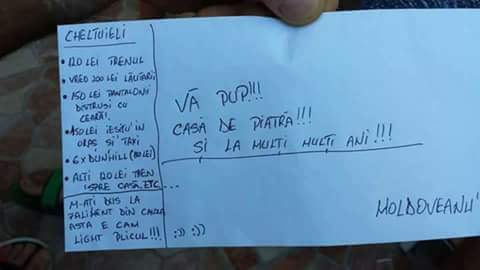 CHELTUIELI
• 120 LEI TRENUL
• VREO 200 LEI LĂUTARII
• 150 LEI PANTALONI
DISTRUȘI CU
CEARĂ!
• 150 LEI IEȘITU' IN
ORAȘ ȘI TAXI
• 6 X DUNHILL (80 LEI)
• ALȚI 120 LEI TREN
SPRE CASĂ, ETC...
M-AȚI DUS LA
FALIMENT DIN CAUZA
ASTA E CAM
LIGHT PLICUL!!!
VĂ PUP!!!
CASĂ DE PIATRĂ!!!
ȘI LA MULȚI MULȚI ANI!!!
MOLDOVEANU'
:)) :))